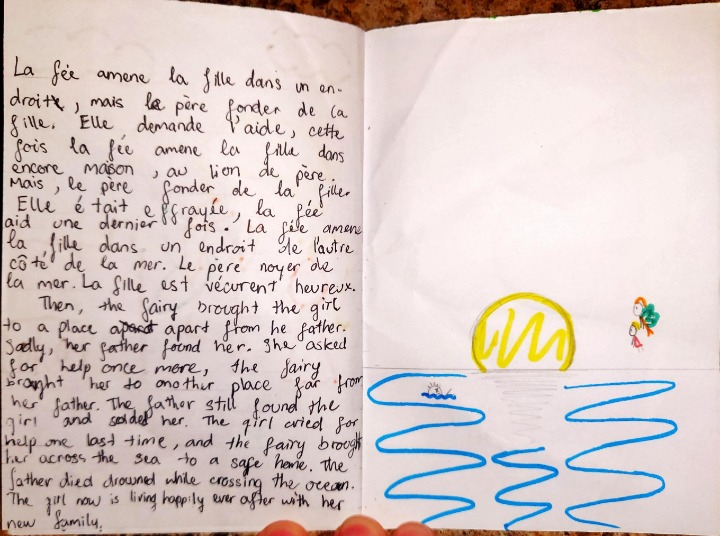 La fée amene la fille dans un en-
droit, mais le père fonder de la
fille. Elle demande l'aide, cette
fois la fée amene la fille dans
encore maison, au lion de père.
Mais, le père fonder de la fille.
Elle était effrayée, la fée
aid une dernier fois. La fée amene
la fille dans un endroit de l'autre
côté de la mer. Le père noyer de
la mer. La fille est vécurent heureux.
Then, the fairy brought the girl
to a place apart from he father.
Sadly, her father found her. She asked
for help once more, the fairy
brought her to another place far from
her father. The father still found the
girl and her. The girl cried for
help one last time, and the fairy brought
her across the sea to a safe home. The
father died drowned while crossing the ocean.
The girl now is living happily ever after with her
new family.